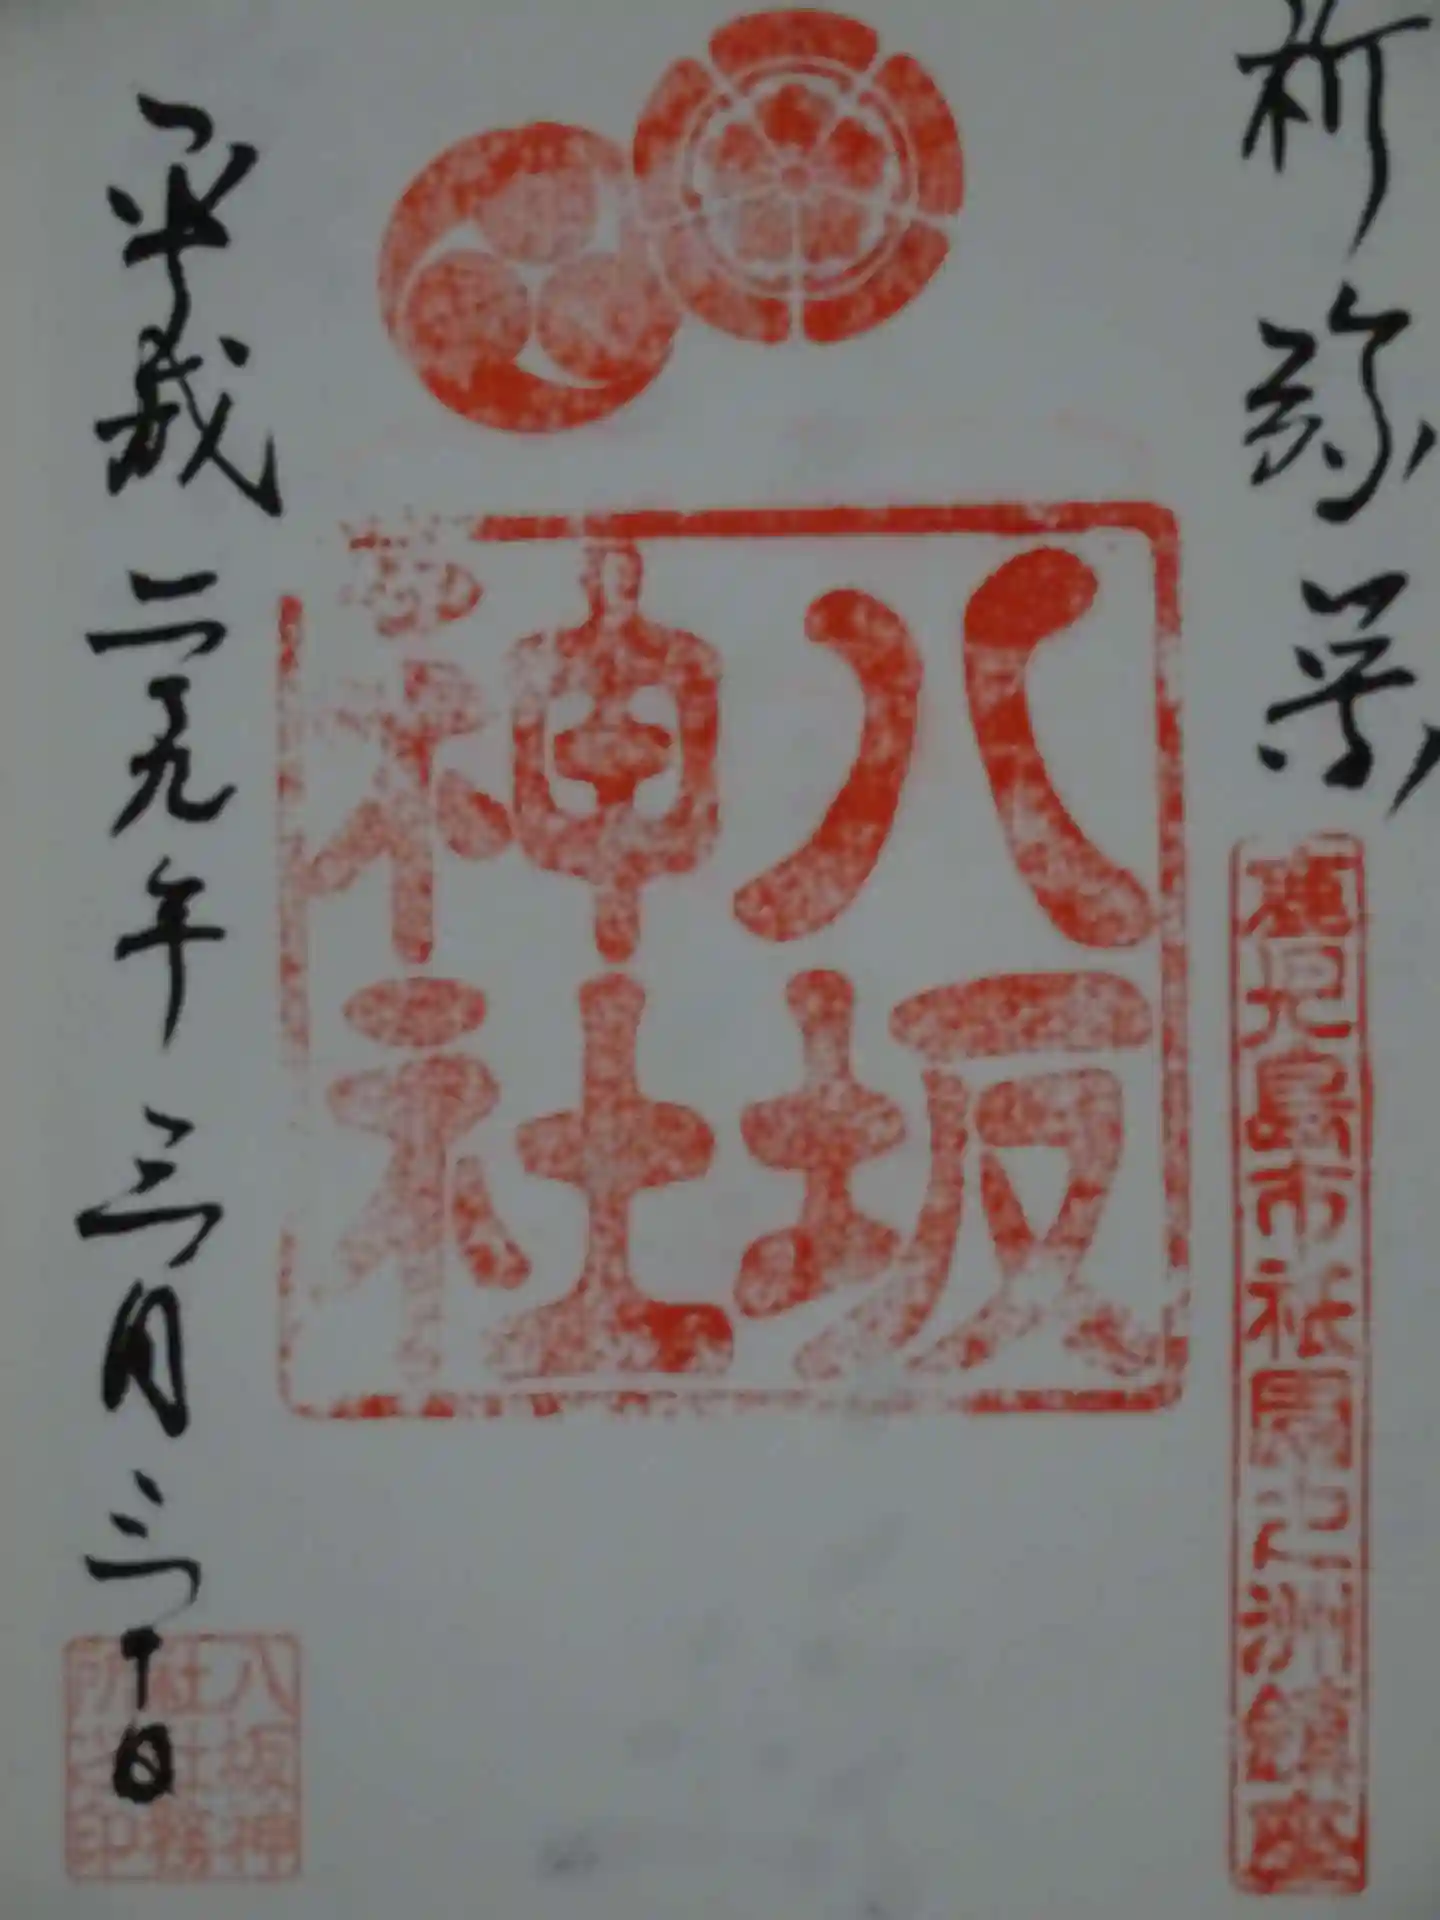 祈弥栄
鹿児島市祇園之洲鎮座
八坂神社
平成二十九年三月三十日
八坂神社社務所之印